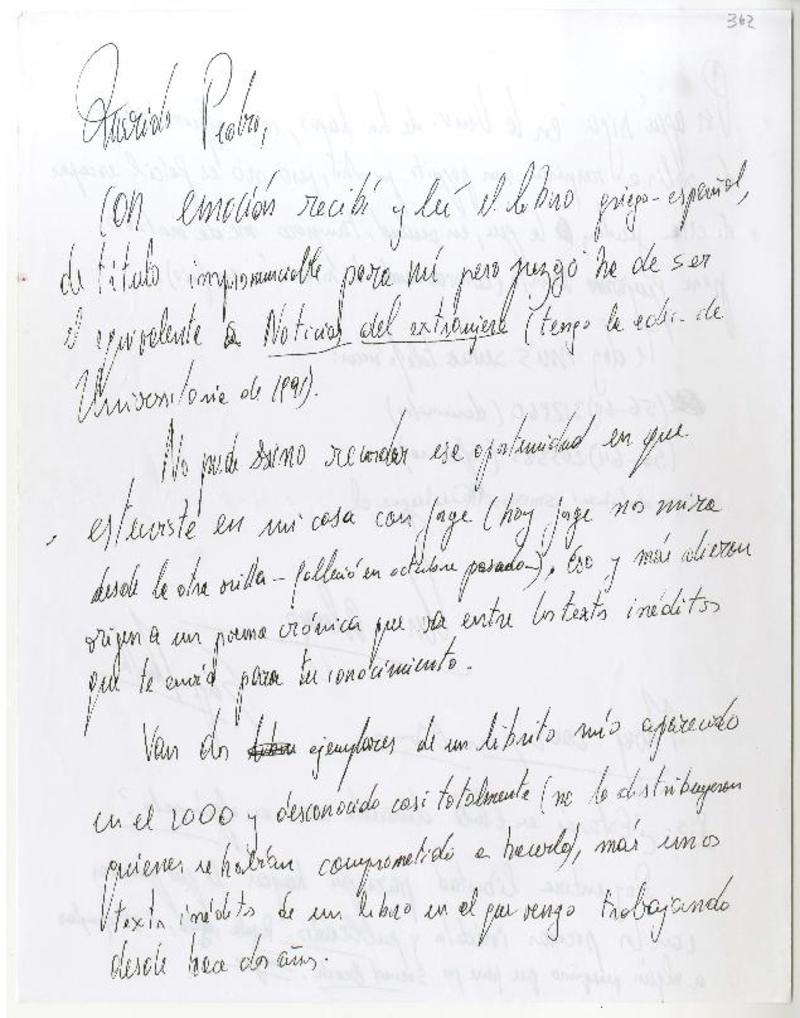 362
Querido Pedro,
Con emoción recibí y leí el libro griego-español,
de título impronunciable para mí pero juzgo ha de ser
el equivalente a Noticias del extranjero (tengo la edic. de
Universitaria de 1991).
No pude sino recordar esa oportunidad en que
estuviste en mi casa con Jorge (hoy Jorge nos mira
desde la otra orilla - falleció en octubre pasado-). Eso y más dieron
origen a un poema crónica que va entre los texts inéditos
que te envío para tu conocimiento.
Van dos ejemplares de un librito mío aparecido
en el 2000 y desconocido casi totalmente (no lo distribuyeron
quienes se habían comprometido a hacerlo), más unos
texts inéditos de un libro en el que vengo trabajando
desde hace dos años.